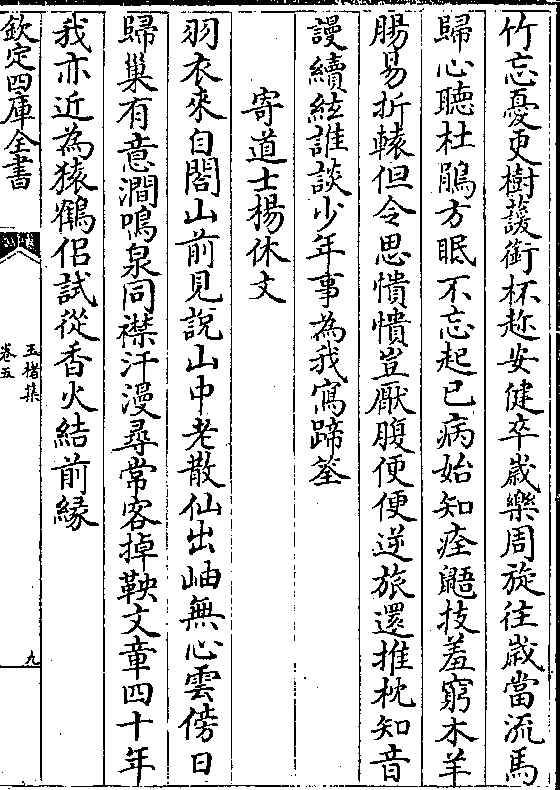 竹忘憂更樹蘐銜杯趁安健卒歲樂周旋往歲當流馬
歸心聽杜鵑方眠不忘起已病始知痊鼯技羞窮木羊
腸易折轅但令思憒憒豈厭腹便便逆旅還推枕知音
謾續絃誰談少年事為我寫蹄筌
寄道士楊休文
羽衣來自閤山前見說山中老散仙出岫無心雲傍日
歸巢有意澗鳴泉同襟汗漫尋常客掉鞅文章四十年
我亦近為猿鶴侣試從香火結前縁
欽定四庫全書
玉楮集
卷五
九